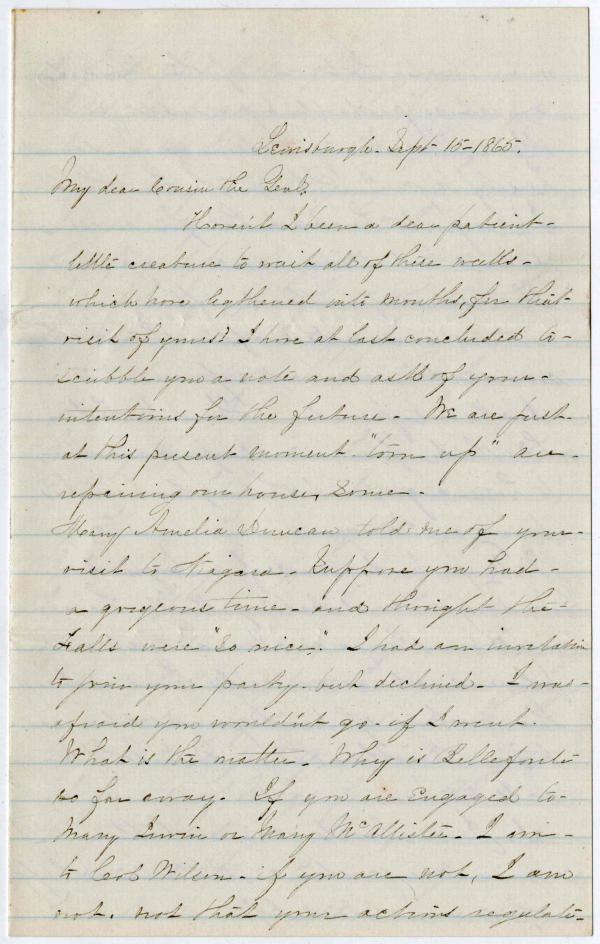 Lewisburgh. Sept 15-1865.
My dear Cousin the Genl.
Haven't I been a dear patient-
little creature to wait all of these weeks-
which have legthened into months, for that
visit of yours? I have at last concluded to-
scribble you a note and ask of your-
intentions for the future- We are just-
at this present moment "torn up" are-
repairing our house, some-
Mary Amelia Duncan told me of your-
visit to Niagara- Suppose you had-
a gorgeous time- and thought the-
Falls were "so nice." I had an invitation
to join your party- but declined- I was-
afraid you wouldn't go- if I went.
What is the matter- Why is Bellefonte
so far away. If you are Engaged to-
Mary Irwin or Mary McAllister- I am-
to Col Wilson- if you are not, I am
not. not that your actions regulate-